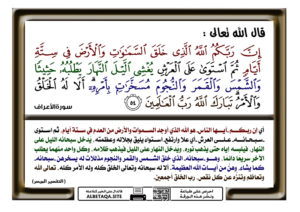 قال الله تعالى :
إِنَّ رَبَّكُمُ اللَّهُ الَّذِي خَلَقَ السَّمَاوَاتِ وَالْأَرْضَ فِي سِتَّةِ
أَيَّامٍ ثُمَّ اسْتَوَىٰ عَلَى الْعَرْشِ يُغْشِي اللَّيْلَ النَّهَارَ يَطْلُبُهُ حَثِيثًا
وَالشَّمْسَ وَالْقَمَرَ وَالنُّجُومَ مُسَخَّرَاتٍ بِأَمْرِهِ أَلَا لَهُ الْخَلْقُ
وَالْأَمْرُ تَبَارَكَ اللَّهُ رَبُّ الْعَالَمِينَ ٥٤
سورة الأعراف
أي إن ربكم ـ أيها الناس ـ هو الله الذي أوجد السموات والأرض من العدم في ستة أيام، ثم استوى
ـ سبحانه ـ على العرش ـ أي علا وارتفع ـ استواءً يليق بجلاله وعظمته، يُدخل سبحانه الليل على
النهار، فيلبسه إياه حتى يذهب نوره، ويُدخل النهار على الليل فيذهب ظلامه، وكل واحد منهما يطلب
الآخر سريعًا دائمًا، وهو ـ سبحانه ـ الذي خلق الشمس والقمر والنجوم مذللات له يسخرهن ـ سبحانه ـ
كما يشاء، وهن من آيات الله العظيمة. ألا له سبحانه وتعالى الخلق كله وله الأمر كله، تعالى الله
وتعاظم وتنزه عن كل نقص، رب الخلق أجمعين.
( التفسير الميسر )
ALBETAQA.SITE